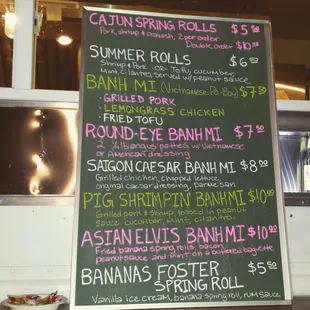 CAJUN SPRING ROLLS $5
Pork, shrimp & crawfish, 2 per order
Double order $10
SUMMER ROLLS $6
Shrimp & Pork -OR- Tofu, cucumber,
Mint, cilantro, served w/ peanut sauce
BANH MI (Vietnamese Po-Boy) $7.50
• GRILLED PORK
• LEMONGRASS CHICKEN
• FRIED TOFU
ROUND-EYE BANH MI $7
2 ¼ lb angus patties w/ Vietnamese
or American dressing
SAIGON CAESAR BANH MI $8
Grilled chicken, chopped lettuce,
original caesar dressing, Parmesan
PIG SHRIMPIN' BANH MI $10
Grilled pork & shrimp tossed in peanut
sauce, cucumber, mint, cilantro
ASIAN ELVIS BANH MI $10
Fried banana spring rolls, bacon,
peanut sauce and mint on a buttered baguette
BANANAS FOSTER $5.50
SPRING ROLL
Vanilla ice cream, banana spring roll, rum sauce